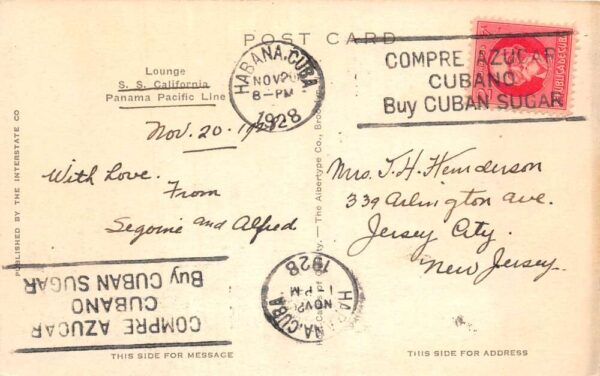 POST CARD
Lounge
S. S. California
Panama Pacific Line
HABANA, CUBA.
NOV 20
8-PM
1928
COMPRE AZUCAR
CUBANO
Buy CUBAN SUGAR
Nov. 20. 1928
With Love.
From
Segoine and Alfred
Mrs. T. H. Henderson
339 Arlington ave.
Jersey City.
New Jersey.
PUBLISHED BY THE INTERSTATE CO
The Albertype Co.,
COMPRE AZUCAR
CUBANO
Buy CUBAN SUGAR
CUBA
NOV
PM
1928
THIS SIDE FOR MESSAGE
THIS SIDE FOR ADDRESS